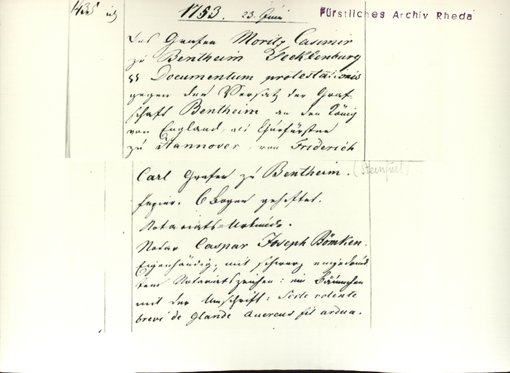 1753. 23. Juni
Fürstliches Archiv Rheda
Des Grafen Moritz Casimir
zu Bentheim Tecklenburg
Documentum protestationis
gegen den Versatz der Graf-
schaft Bentheim an den König
von England als Churfürsten
zu Hannover von Friderich
Carl Grafen zu Bentheim.
(Steinfurt)
Papier. 6 Bogen geheftet.
Notariats-Urkunde.
Notar Caspar Joseph Bömken.
Eigenhändig, mit schwarz angedruck-
tem Notariatszeichen: ein Bäumchen
mit der Umschrift: Siste volente
breve de glande quercus fit ardua.